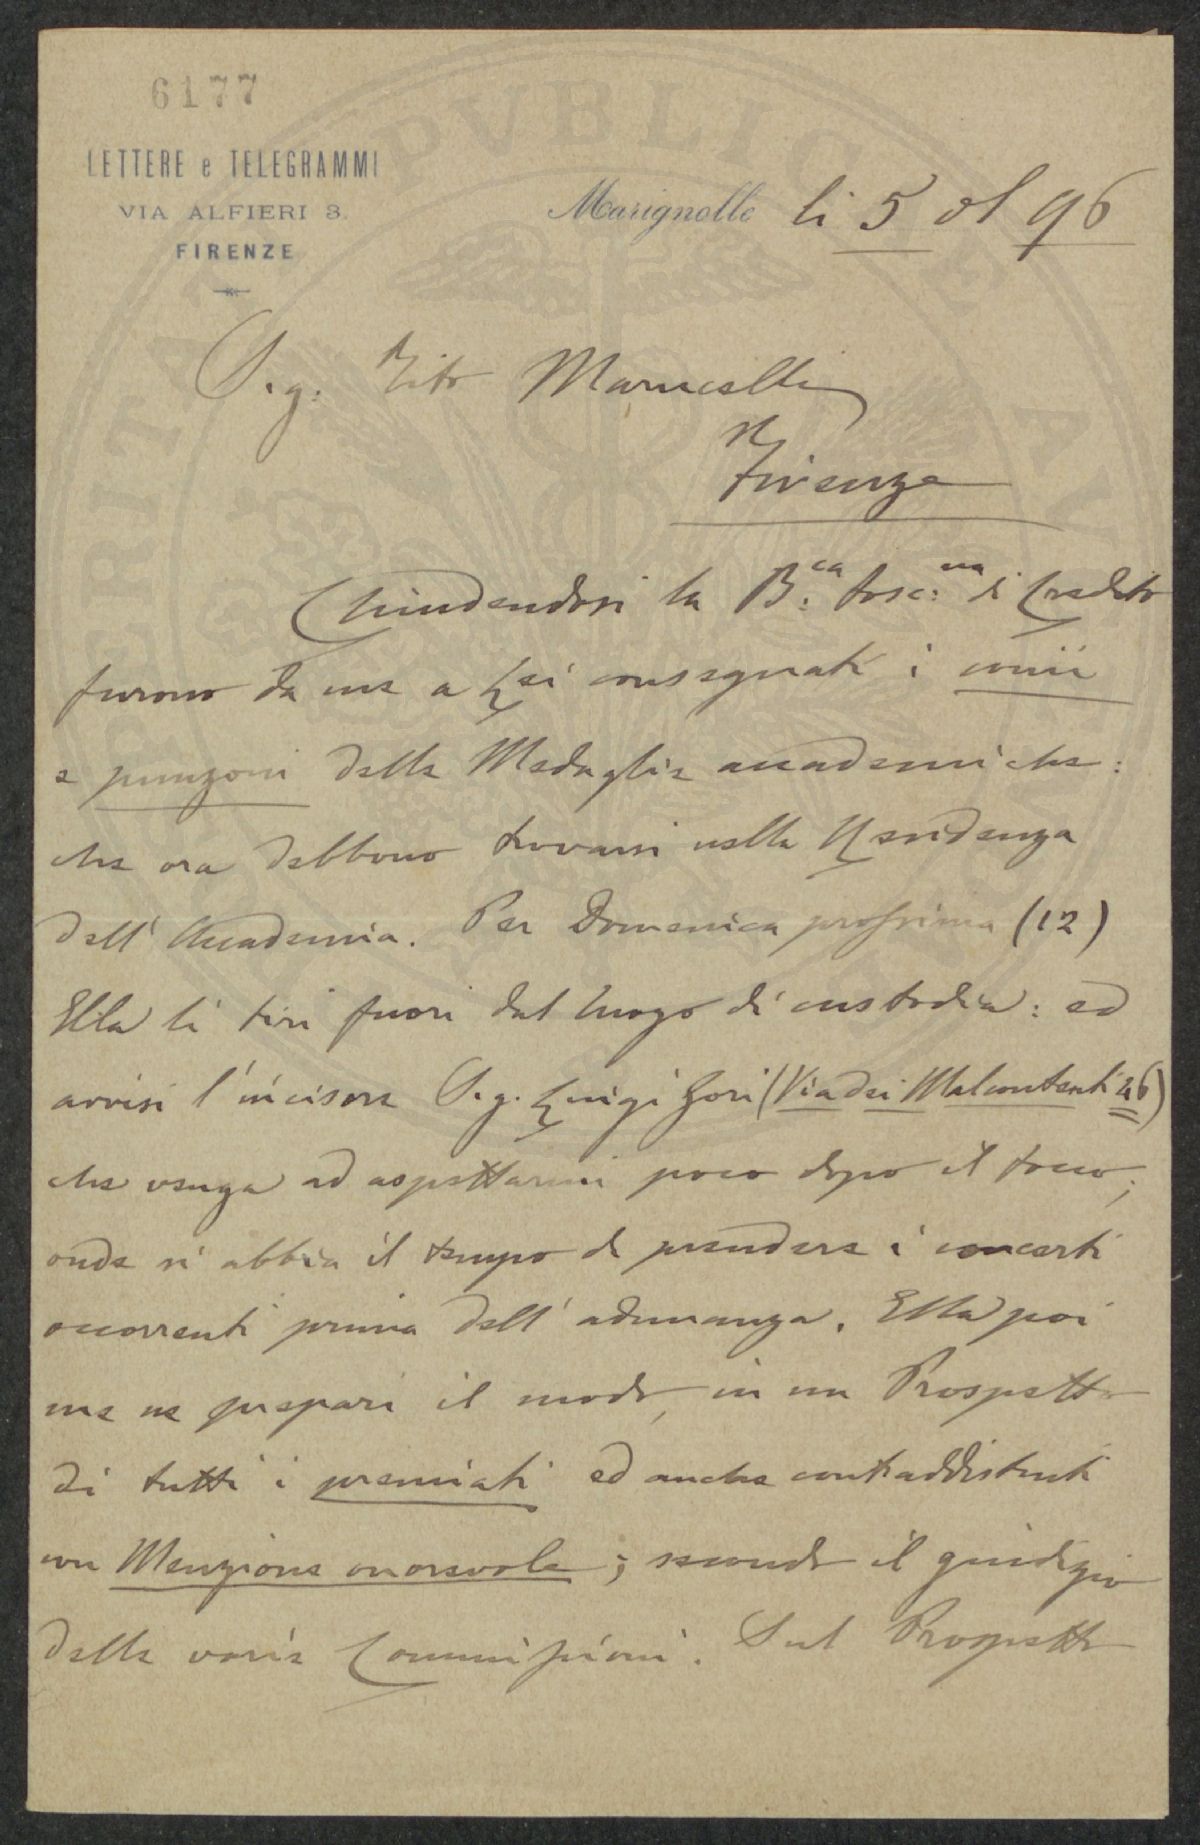 6177
LETTERE e TELEGRAMMI
VIA ALFIERI 3.
FIRENZE
Marignolle li 5 96
Sig: Tito Marucelli
Firenze
Chiudendosi la B:ca tosc:na di Credito
furono da me a Lei consegnati i conii
e punzoni delle Medaglie accademiche:
che ora debbono trovarsi nella Residenza
dell' Accademia. Per Domenica prossima (12)
Ella li tiri fuori dal luogo di custodia: ed
avvisi l'incisore Sig. Luigi Gori (Via dei Malcontenti 46)
che venga ad aspettarmi poco dopo il tocco;
onde si abbia il tempo di prendere i concerti
occorrenti prima dell' adunanza. Ella poi
me ne prepari il modo, in un Prospetto
di tutti i premiati ed anche contraddistinti
con Menzione onorevole; secondo il giudizio
delle varie Commissioni. Sul Prospetto